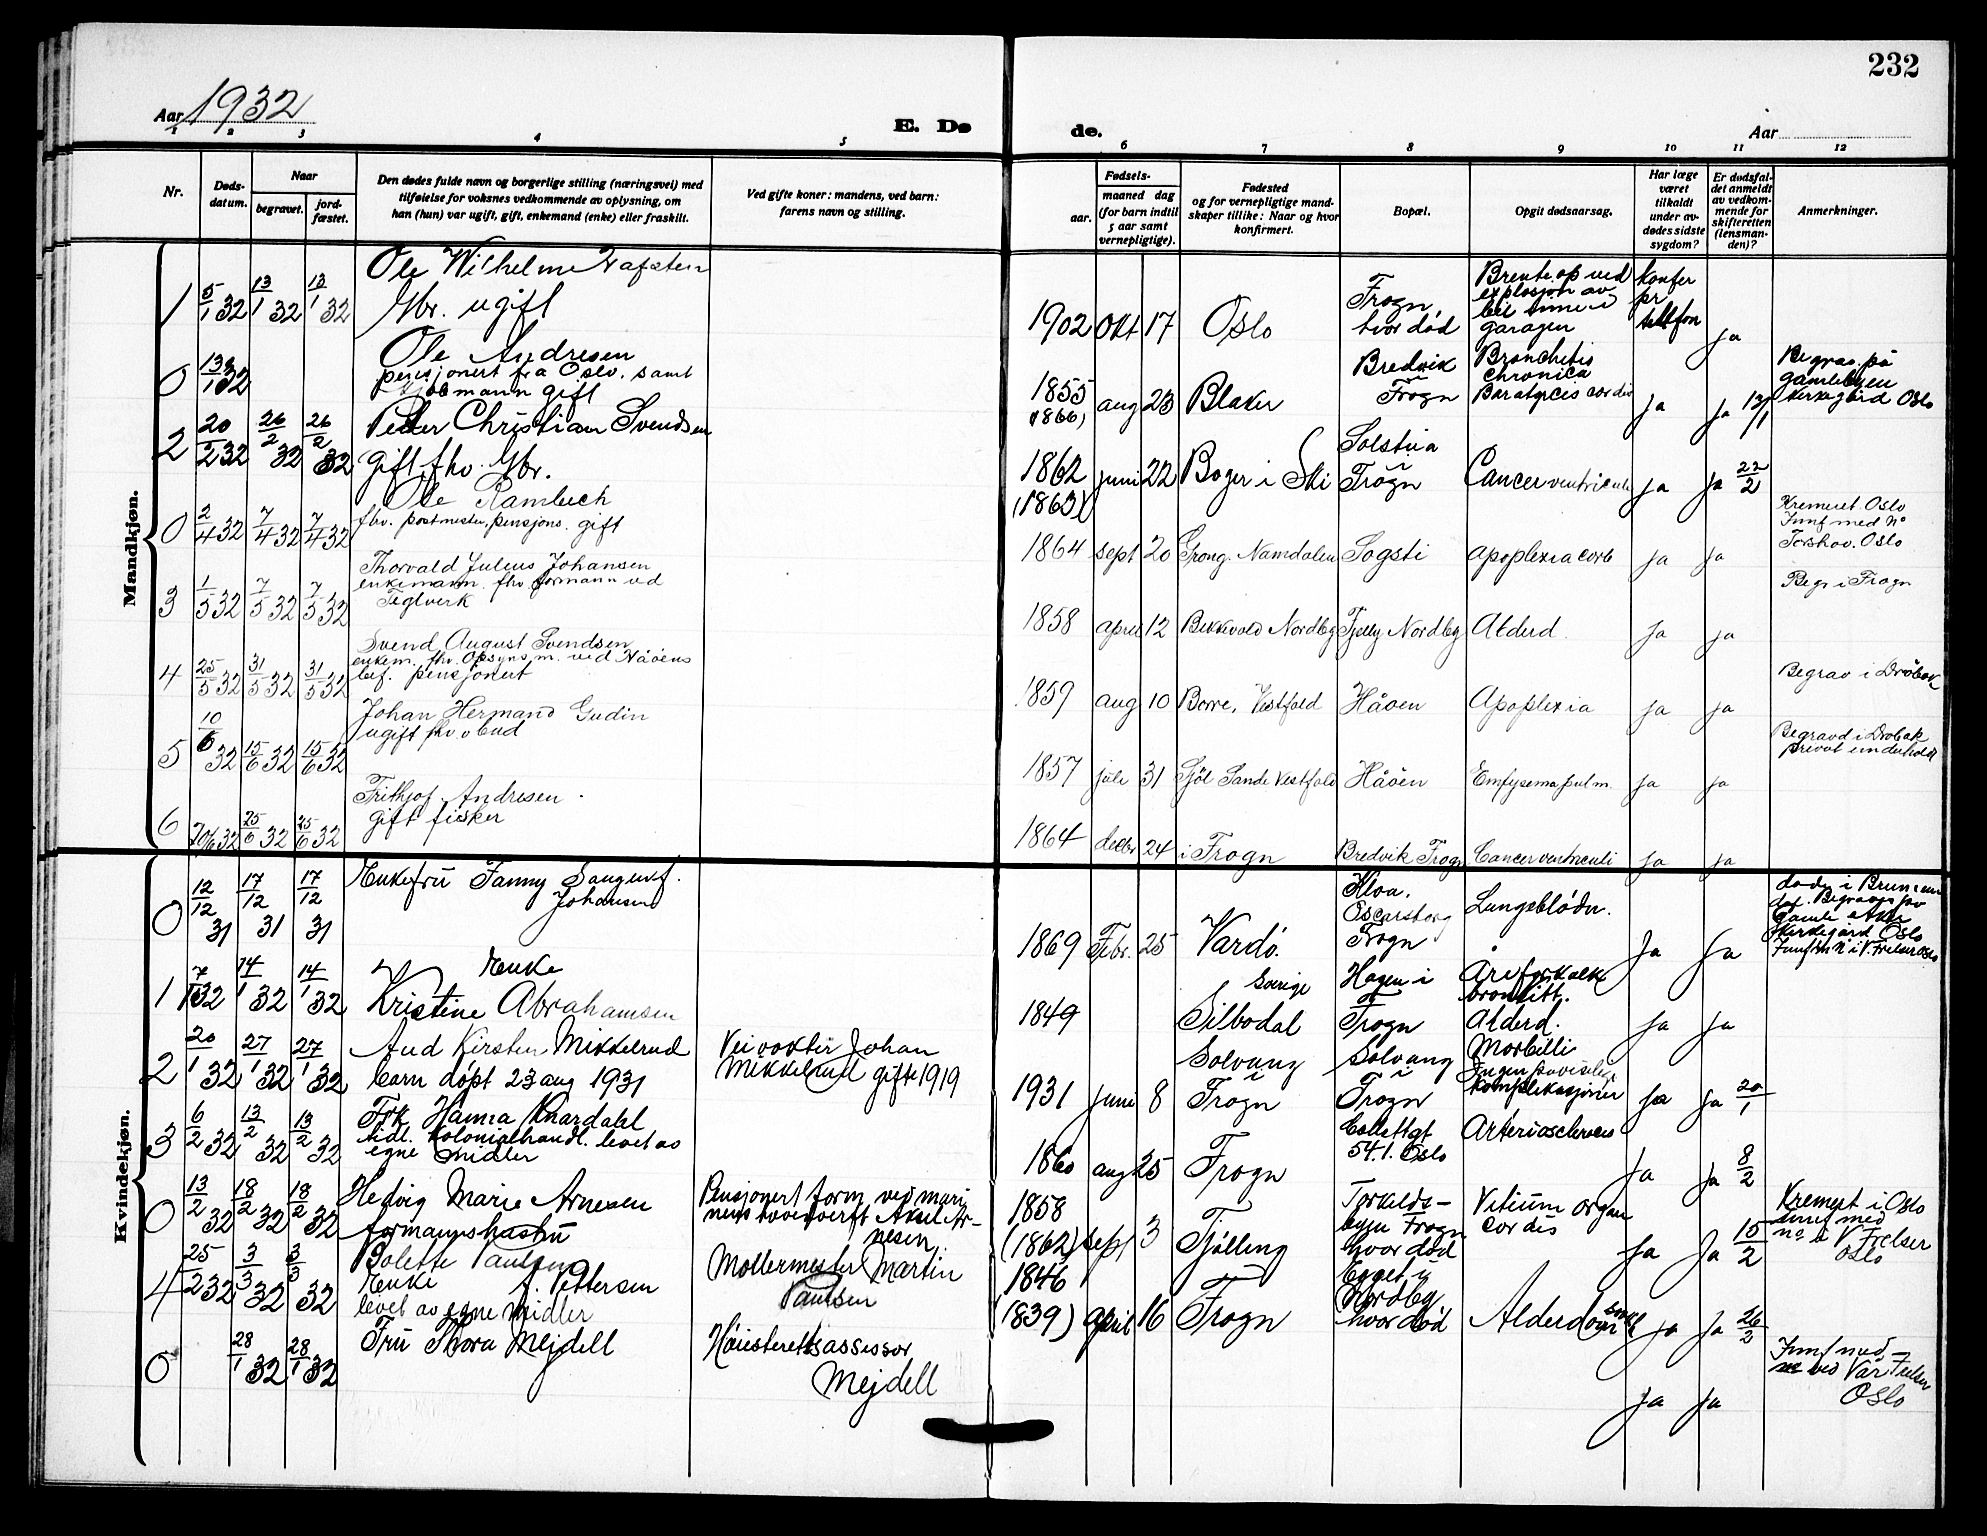 232
Aar 1932
E. Dø
de.
Aar
1 2 3 4 5 6 7 8 9 10 11 12
Nr.
Døds-
datum.
Naar
begravet.
jord-
fæstet.
Den dødes fulde navn og borgerlige stilling (næringsvei) med
tilføielse for voksnes vedkommende av oplysning, om
han (hun) var ugift, gift, enkemand (enke) eller fraskilt.
Ved gifte koner: mandens, ved barn:
farens navn og stilling.
Fødsels-
aar.
maaned dag
(for barn indtil
5 aar samt
vernepligtige).
Fødested
og for vernepligtige mand-
skaper tillike: Naar og hvor
konfirmert.
Bopæl.
Opgit dødsaarsag.
Har læge
været
tilkaldt
under av-
dødes sidste
sygdom?
Er dødsfal-
det anmeldt
av vedkom-
mende for
skifteretten
(lensman-
den)?
Anmerkninger.
Mandkjøn.
1 5/1 32 13/1 32 13/1 32
Ole Wilhelm
Gbr. ugift
1902 Okt 17 Oslo
Frogn,
hvor død
Brente op ved
explosjon av
bil inne i
garagen
konfer
pr
telefon
ja
0 13/1 32
Ole Andresen
pensjonert fra Oslo. samt
gift
1855
(1866) aug 23 Blaker
Bredvik
Frogn
Bronchitis
chronica
cordis
ja ja 13/1
Begrav. på
gamlebyen
kirkegård Oslo
2 20/2 32 26/2 32 26/2 32
Peder Christian Svendsen
gift fhv. Gbr.
1862
(1863) juni 22 Boger i Ski
Solstua
i
Frogn
Cancer ventriculi ja ja 22/2
0 2/4 32 7/4 32 7/4 32
Ole Rambech
fhv. postmester, pensjons. gift
1864 sept 20 Grong. Namdalen Sogsti apoplexia cerb ja ja
Kremeret. Oslo
Jmf med No
Torshov. Oslo
3 1/5 32 7/5 32 7/5 32
Thorvald Julius Johansen
enkemann. fhv. formann ved
Teglverk
1858 april 12 Bekkevold Nordby Fjelly Nordby Alderd. ja ja
Begr i Frogn
4 25/5 32 31/5 32 31/5 32
Svend August Svendsen
enkem. fhv. Opsyns m. ved Håøens
bef. pensjonert
1859 aug 10 Borre, Vestfold Håøen Apoplexia ja ja
Begrav i Drøbak
5 10/6 32 15/6 32 15/6 32
Johan Hermand Gudin
ugift fhv.
1857 juli 31 Sande Vestfold Håøen Emfysema pulm. ja ja
Begravd i Drøbak
privat underholdt
6 20/6 32 25/6 32 25/6 32
Frithjof Andresen.
gift fisker
1864 24 i Frogn Bredvik Frogn Cancer ventriculi ja ja
Kvindekjøn.
0 12/12 31 17/12 31 17/12 31
Enkefru Fanny
Johansen
1869 Febr. 25 Vardø.
Oscarsborg
Frogn
Lungeblødn.
Ja Ja
Gamle Aker
kirkegård Oslo
1 7/1 32 14/1 32 14/1 32
Enke
Kristine Abrahamsen
1849
Sverige
Silbodal
Hagen i
Frogn
Åreforkalk
bronkitt.
Alderd.
ja ja
2 20/1 32 27/1 32 27/1 32
Aud Kirsten Mikkelrud
barn døpt 23 aug 1931
Veivokter Johan
Mikkelrud gifte 1919
1931 juni 8
Solvang
i
Frogn
Solvang
i
Frogn
Morbilli
Ingen påviselige
komplikasjoner
ja ja 20/1
3 6/2 32 13/2 32 13/2 32
Frk Hanna Knardahl
tidl. kolonialhandl. levet av
egne midler
1860 aug 25 Frogn
54.1. Oslo
Arteriosclerosis
ja ja 8/2
0 13/2 32 18/2 32 18/2 32
Hedvig Marie Arnesen
formannshustru
Pensjonert form. ved mari
nens hovedverft Aksel Ar-
nesen
1858
(1862) sept 3 Tjølling
Torkelds-
byen Frogn
hvor død
Vitium organ
cordis
Ja Ja 15/2
Kremert i Oslo
jmf med
no i V Frelser
Oslo
4 25/2 32 3/3 32 3/3 32
Bolette Paulsen
Enke f. Pettersen
levet av egne midler
Møllermester Martin
Paulsen
1846
(1839) april 16 Frogn
Egget i
Nordby
hvor død
Alderdoms
ja ja 26/2
0 28/1 32 28/1 32
Fru Thora Mejdell
Høiesterettsassessor
Mejdell
Ja Ja
Jmf med
ved Vår Frelser
Oslo